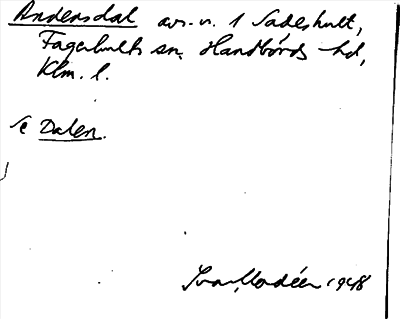 Andersdal avs. u. 1 Sadeshult,
Fagerhults sn, Handbörds hd,
Klm. l.
Se Dalen.
Ivar Modéer 1948